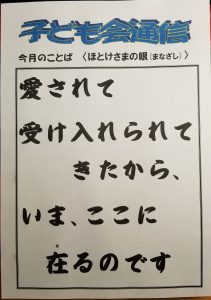 子ども会通信
今月のことば 〈ほとけさまの眼(まなざし)〉
愛されて
受け入れられて
きたから、
いま、ここに
在るのです